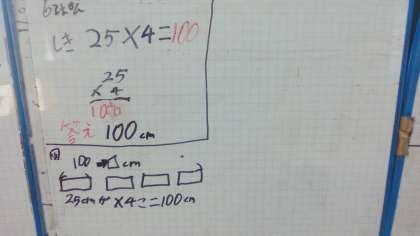 しき 25×4=100
25
×4
100
答え 100cm
図
100 cm
25cmが×4こ=100cm